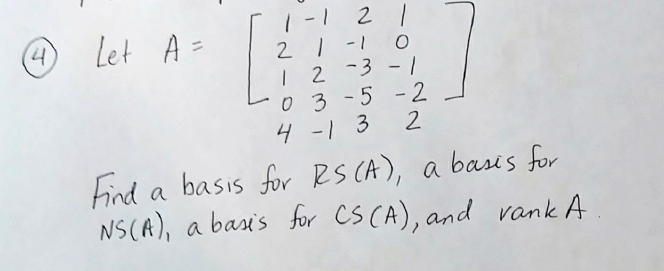 ④ Let A = [ 1 -1 2 1
2 1 -1 0
1 2 -3 -1
0 3 -5 -2
4 -1 3 2 ]
Find a basis for RS(A), a basis for
NS(A), a basis for CS(A), and rank A.